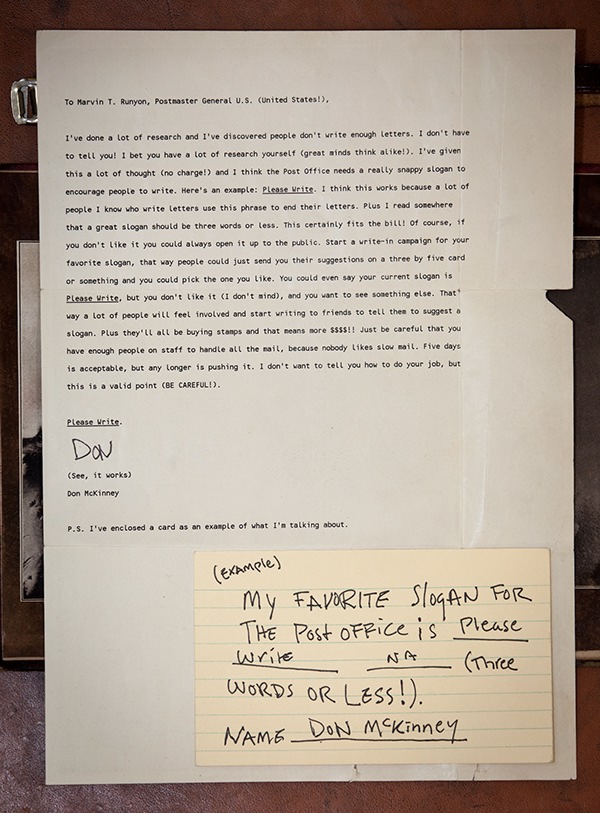 To Marvin T. Runyon, Postmaster General U.S. (United States!),
I've done a lot of research and I've discovered people don't write enough letters. I don't have
to tell you! I bet you have a lot of research yourself (great minds think alike!). I've given
this a lot of thought (no charge!) and I think the Post Office needs a really snappy slogan to
encourage people to write. Here's an example: Please Write. I think this works because a lot of
people I know who write letters use this phrase to end their letters. Plus I read somewhere
that a great slogan should be three words or less. This certainly fits the bill! Of course, if
you don't like it you could always open it up to the public. Start a write-in campaign for your
favorite slogan, that way people could just send you their suggestions on a three by five card
or something and you could pick the one you like. You could even say your current slogan is
Please Write, but you don't like it (I don't mind), and you want to see something else. That
way a lot of people will feel involved and start writing to friends to tell them to suggest a
slogan. Plus they'll all be buying stamps and that means more $$$$!! Just be careful that you
have enough people on staff to handle all the mail, because nobody likes slow mail. Five days
is acceptable, but any longer is pushing it. I don't want to tell you how to do your job, but
this is a valid point (BE CAREFUL!).
Please Write.
DON
(See, it works)
Don McKinney
P.S. I've enclosed a card as an example of what I'm talking about.
(EXAMPLE)
MY FAVORITE SlOgAN FOR
THE Post OFFICE is Please
Write NA (Three
WORDS OR LESS!).
NAME DON McKinney